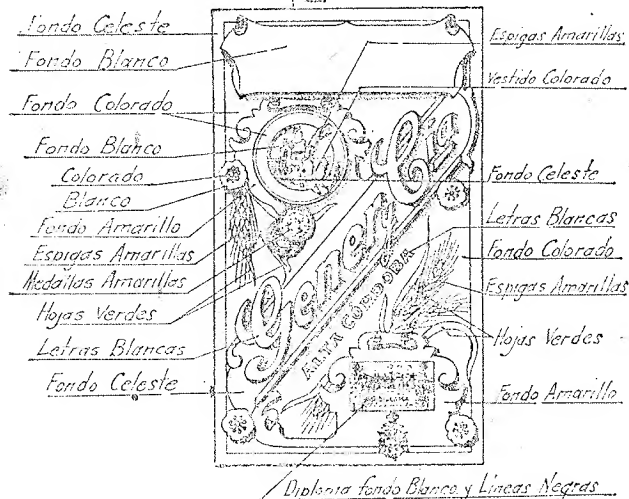 Fondo Celeste
Fondo Blanco
Fondo Colorado
Fondo Blanco
Colorado
Blanco
Fondo Amarillo
Espigas Amarillas
Medallas Amarillas
Hojas Verdes
Letras Blancas
Fondo Celeste
Espigas Amarillas
Vestido Colorado
Fondo Celeste
Letras Blancas
Fondo Colorado
Espigas Amarillas
Hojas Verdes
Fondo Amarillo
Gener y Cia
ALTA CORDOBA
Diploma fondo Blanco y Lineas Negras